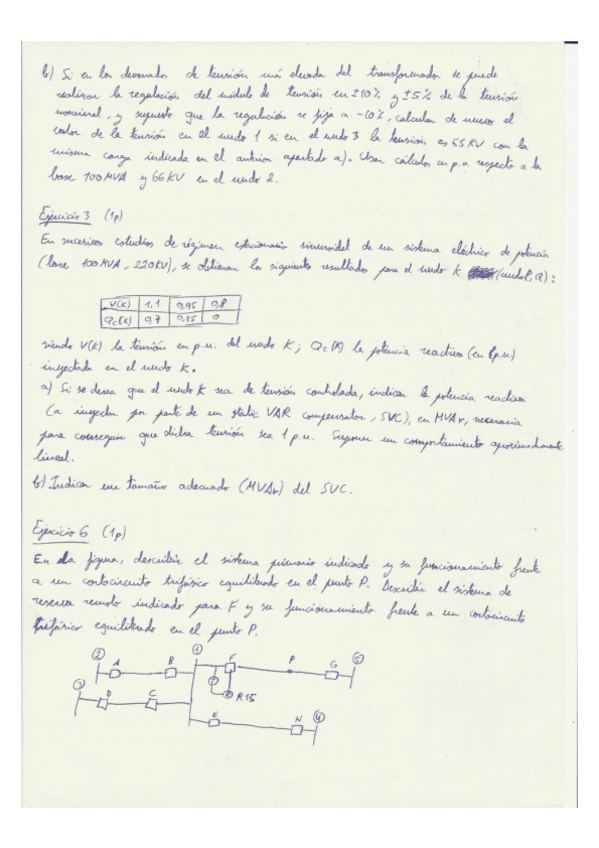 b) Si en los devanados de tensión más elevada del transformador se puede
realizar la regulación del módulo de tensión en ±10% y ±5% de la tensión
nominal, y supuesto que la regulación se fija a -10%, calcular de nuevo el
valor de la tensión en el nudo 1 si en el nudo 3 la tensión es 65 KV con la
misma carga indicada en el anterior apartado a). Usar cálculos en p.u. respecto a la
base 100 MVA y 66 KV en el nudo 2.
Ejercicio 3 (1p)
En sucesivos estudios de régimen estacionario sinusoidal de un sistema eléctrico de potencia
(base 100 MVA, 220 KV), se obtienen los siguientes resultados para el nudo K (nudo P, Q):
V(K) 1,1 0,95 0,8
Qc(K) 0,7 0,35 0
siendo V(K) la tensión en p.u. del nudo K; Qc(K) la potencia reactiva (en p.u.)
inyectada en el nudo K.
a) Si se desea que el nudo K sea de tensión controlada, indicar la potencia reactiva
(a inyectar por parte de un static VAR compensator, SVC), en MVAr, necesaria
para conseguir que dicha tensión sea 1 p.u. Suponer un comportamiento aproximadamente
lineal.
b) Indicar un tamaño adecuado (MVAr) del SVC.
Ejercicio 6 (1p)
En la figura, describir el sistema primario indicado y su funcionamiento frente
a un cortocircuito trifásico equilibrado en el punto P. Describir el sistema de
reserva remoto indicado para F y su funcionamiento frente a un cortocircuito
trifásico equilibrado en el punto P.
2 A B 1 F P G 5
3 D C R15
E H 4